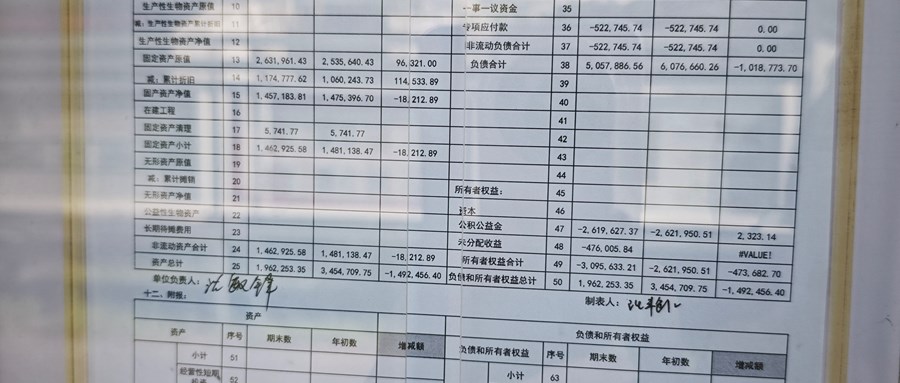 生产性生物资产原值 10 一事一议资金 35
减：生产性生物资产累计折旧 11 专项应付款 36 -522,745.74 -522,745.74 0.00
生产性生物资产净值 12 非流动负债合计 37 -522,745.74 -522,745.74 0.00
固定资产原值 13 2,631,961.43 2,535,640.43 96,321.00 负债合计 38 5,057,886.56 6,076,660.26 -1,018,773.70
减：累计折旧 14 1,174,777.62 1,060,243.73 114,533.89 39
固定资产净值 15 1,457,183.81 1,475,396.70 -18,212.89 40
在建工程 16 41
固定资产清理 17 5,741.77 5,741.77 42
固定资产小计 18 1,462,925.58 1,481,138.47 -18,212.89 43
无形资产原值 19 44
减：累计摊销 20 所有者权益： 45
无形资产净值 21 资本 46
公益性生物资产 22 公积公益金 47 -2,619,627.37 -2,621,950.51 2,323.14
长期待摊费用 23 未分配收益 48 -476,005.84 #VALUE!
非流动资产合计 24 1,462,925.58 1,481,138.47 -18,212.89 所有者权益合计 49 -3,095,633.21 -2,621,950.51 -473,682.70
资产总计 25 1,962,253.35 3,454,709.75 -1,492,456.40 负债和所有者权益总计 50 1,962,253.35 3,454,709.75 -1,492,456.40
单位负责人： 制表人：
十二、附报：
资产 负债和所有者权益
资产 序号 期末数 年初数 增减额 负债和所有者权益 序号 期末数 年初数 增减额
小计 51 小计 63
经营性短期投资 52